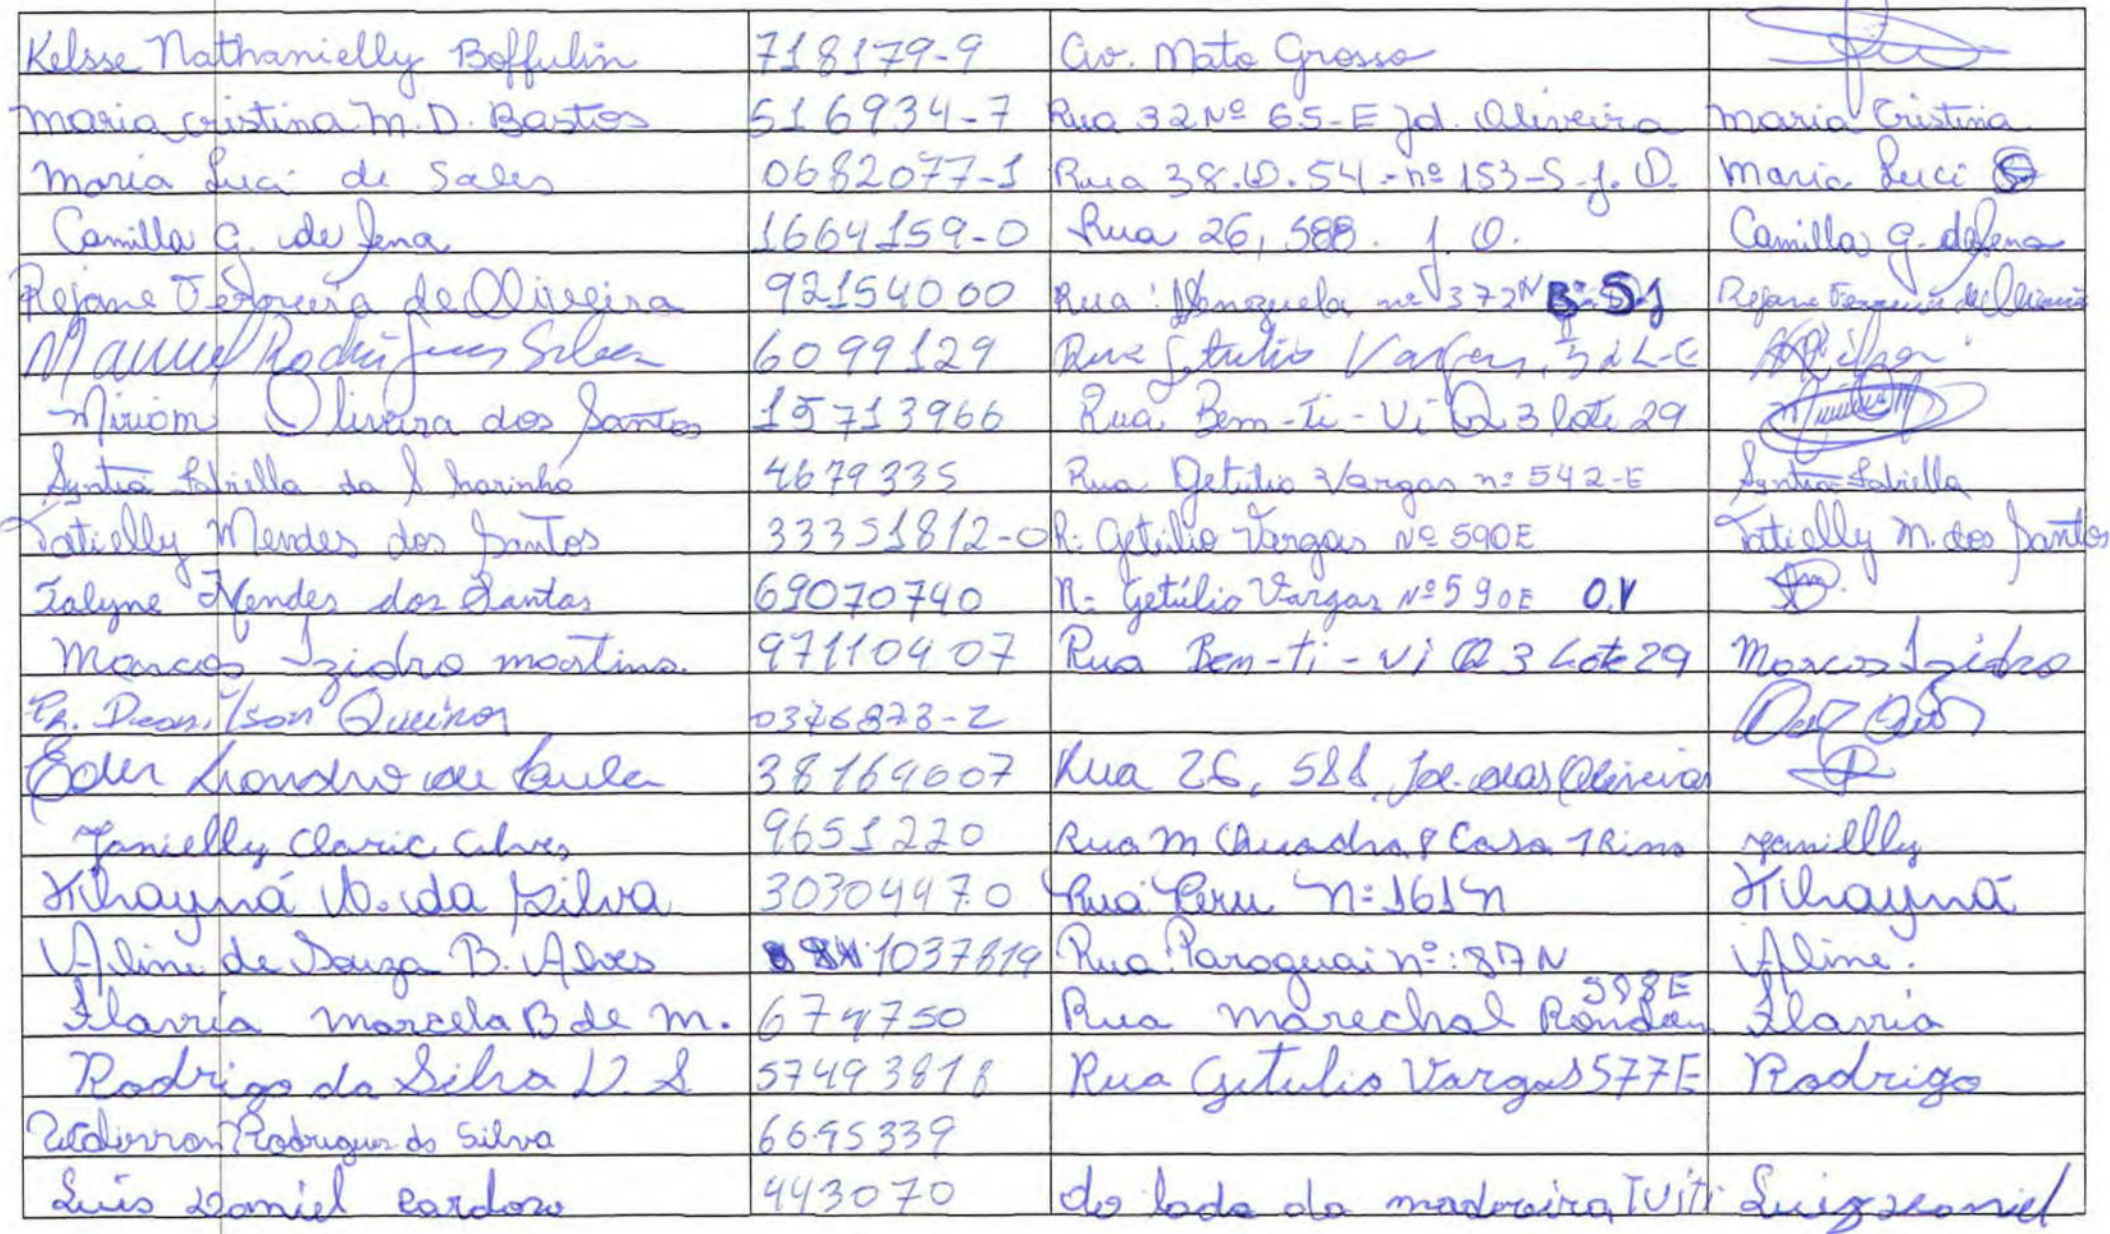 Kelsse Nathanielly Boffulin 718179-9 Av. Mato Grosso
Maria Cristina M. D. Bastos 516934-7 Rua 32 Nº 65-E Jd. Oliveira Maria Cristina
Maria Luci de Sales 0682077-1 Rua 38.Q.54-nº 153-S-J.O. Maria Luci
Camilla G. de Jena 1664159-0 Rua 26, 588. J.O. Camilla G. de Jena
Rejane Ferreira de Oliveira 92154000 Rua: Venezuela nº 372 N Rejane Ferreira de Oliveira
Manuel Rodrigues Silva 6099129 Rua Getulio Vargas,
Miriam Oliveira dos Santos 15713966 Rua Bem-Ti-Vi Q 3 lote 29
Syntia Fabriella da S. Marinho 4679335 Rua Getulio Vargas nº 542-E Syntia Fabriella
Tatielly Mendes dos Santos 33351812-0 R: Getúlio Vargas Nº 590E Tatielly M. dos Santos
Talyne Mendes dos Santos 69070740 R- Getúlio Vargas Nº 590E O.V
Marcos Izidro Martins. 97110407 Rua Bem-ti-vi Q 3 Lote 29 Marcos Izidro
Queiroz 0376873-2
Eder Leandro de Paula 38169007 Rua 26, 588, Jd. das Oliveiras
Janielly Claric Alves 9651220 Rua M Quadra 8 Casa Janillly
Khayná V. da Silva 30304497.0 Rua: Peru N:161N Khayná
Aline de Souza B. Alves 1037819 Rua: Paraguai nº: 87 N Aline.
Flavia Marcela B de M. 674750 Rua Marechal Rondon 598E Flavia
Rodrigo da Silva D. S 57493818 Rua Getulio Vargas 577E Rodrigo
Rodrigues da Silva 6695339
Luis Daniel Cardozo 443070 do lado da madereira Luiz Daniel